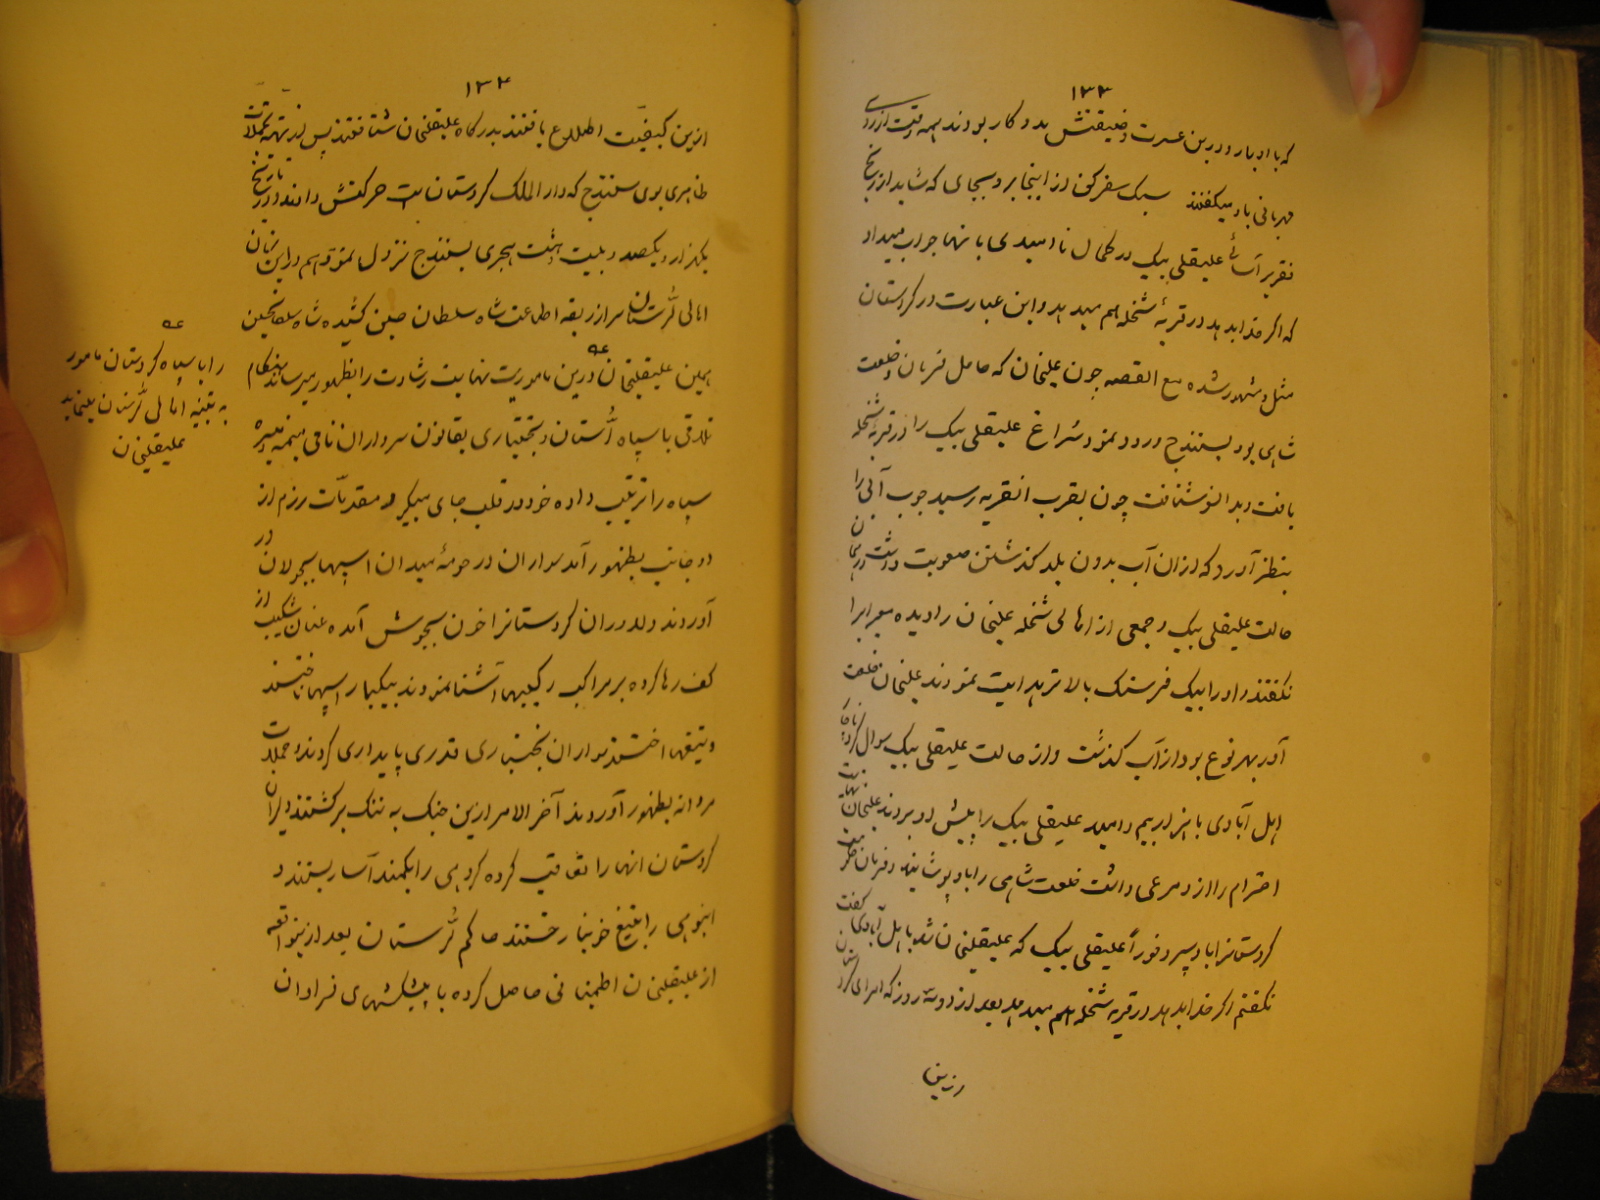 ۱۳۳
که با ادبار و درین عسرت و ضیقتش مددکار بودند همه وقت از روی
مهربانی باو میگفتند سبک سفر کن از اینجا برو بجای که شاید از رنج
تقریر آسائی علیقلی بیک در کمال ناامیدی بانها جواب میداد
که اگر خدا بدهد در قریهٔ شخله هم میدهد و این عبارت در کردستان
مثل و مشهور شده مع القصه چون علیخان که حامل فرمان و خلعت
شاهی بود بسنندج ورود نمود سراغ علیقلی بیک را در قریهٔ شخله
یافت و بدانسو شتافت چون بقرب انقریه رسید جوب آبی را
بنظر آورد که از ان آب بدون بلد گذشتن صعوبت داشت در همان
حالت علیقلی بیک و جمعی از اهالی شخله علیخان را دیده معبر را
نگفتند و او را بیک فرسنگ بالاتر هدایت نمودند علیخان خلعت
آور بهر نوع بود از آب گذشت و از حالت علیقلی بیک سوال کرد ناچار
اهل آبادی با هزار بیم و امید علیقلی بیک را پیش او بردند علیخان نهایت
احترام را از او مرعی داشت خلعت شاهی را باو پوشانید و فرمان حکومت
کردستانرا باو سپرد فوراً علیقلی بیک که علیقلیخان شد باهل آبادی گفت
نگفتم اگر خدا بدهد در قریه شخله هم میدهد بعد از دو سه روز که اهالی کردستان
ازین
۱۳۴
ازین کیفیت اطلاع یافتند بدرگاه علیقلیخان شتافتند پس از تهیه تجملات
ظاهری بوی سنندج که دار الملک کردستان است حرکتش دادند و در تاریخ
یکهزار و یکصد و بیست و هشت هجری بسنندج نزول نمود و هم در این زمان
اهالی لُرستان سر از ربقه اطاعت شاه سلطان حسین کشیده شاه سلطانحسین
همین علیقلیخان درین ماموریت نهایت رشادت را بظهور میرساند هنگام
تلاقی با سپاه لُرستان و بختیاری بقانون سرداران نامی میمنه و میسره
سپاه را ترتیب داده خود در قلب جای میگیرد مقدمات رزم از
دو جانب بظهور آمد سواران در حومهٔ میدان اسپها بجولان در
آوردند دلاوران کردستانرا خون بجوش آمده عنان شکیب از
کف رها کرده بر مراکب رکیبها آشنا نمودند بیکبار اسپها تاختند
و تیغها اختند سواران بختیاری قدری پایداری کردند و حملات
مردانه بظهور آوردند آخر الامر ازین جنک به ننک برگشتند دلیران
کردستان انها را تعاقب کرده گروهی را بکمند آسار بستند و
انبوهی را بتیغ خونبار خستند حاکم لُرستان بعد از ینواقعه
از علیقلیخان اطمینانی حاصل کرده با پیشکشهای فراوان
را با سپاه کردستان مامور
به تنبیه اهالی لُرستان مینماید
علیقلیخان